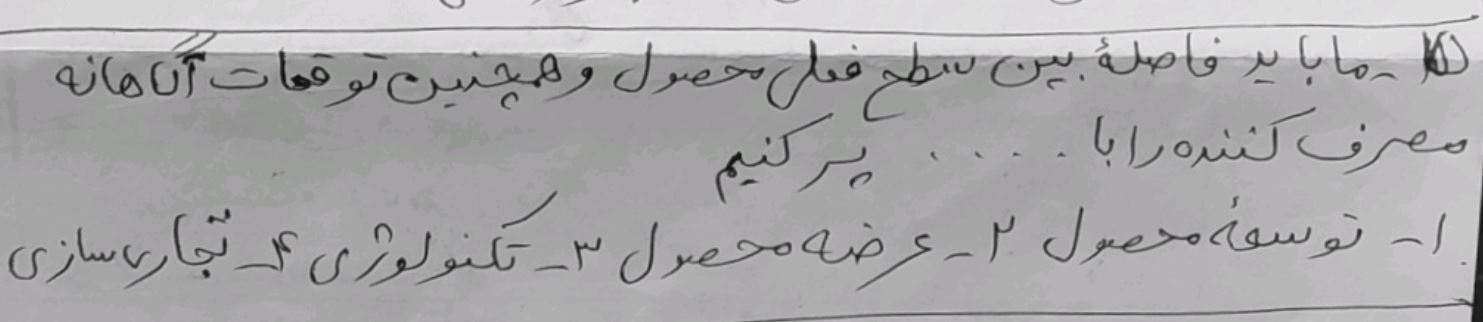 ۵- ما باید فاصلهٔ بین سطح فعلی محصول و همچنین توقعات آگاهانه
مصرف کننده را با ..... پر کنیم
۱- توسعهٔ محصول ۲- عرضه محصول ۳- تکنولوژی ۴- تجاری سازی